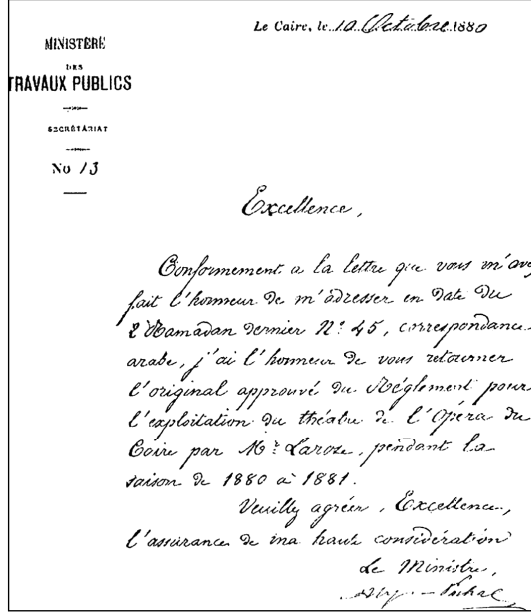 Le Caire, le 10 Octobre 1880
MINISTÈRE
DES
TRAVAUX PUBLICS
SECRÉTARIAT
No 13
Excellence,
Conformement a la lettre que vous m'avez
fait l'honneur de m'adresser en date du
2 Ramadan dernier N° 45, correspondance
arabe, j'ai l'honneur de vous retourner
l'original approuvé du Réglement pour
l'exploitation du théatre de l'Opéra du
Caire par Mr Larose, pendant la
saison de 1880 à 1881.
Veuilly agréer, Excellence,
l'assurance de ma haute considération
Le Ministre,